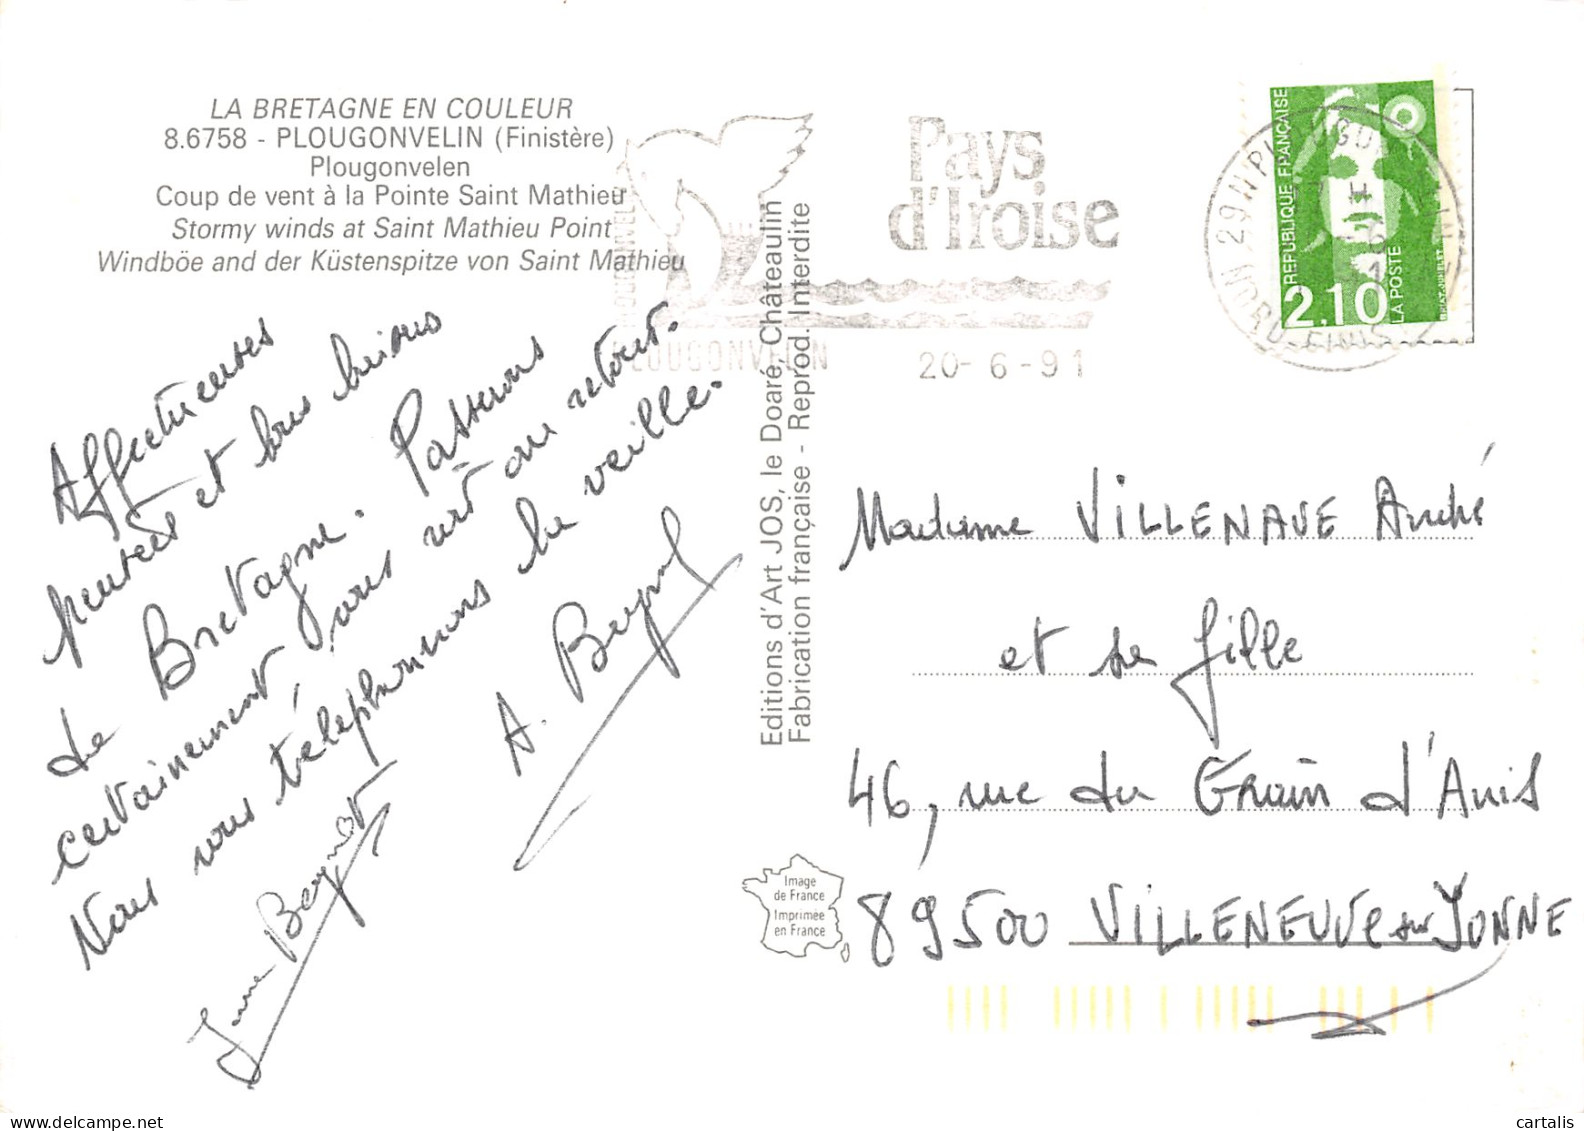 LA BRETAGNE EN COULEUR
8.6758 - PLOUGONVELIN (Finistère)
Plougonvelen
Coup de vent à la Pointe Saint Mathieu
Stormy winds at Saint Mathieu Point
Windböe and der Küstenspitze von Saint Mathieu
Affectueuses
pensées et bons bisous
de Bretagne. Passerons
certainement, vous voir au retour.
Nous vous téléphonerons la veille.
A. Beynot
Beynot
Editions d'Art JOS, le Doaré, Châteaulin
Fabrication française - Reprod. Interdite
PLOUGONVELIN
Pays
d'Iroise
20-6-91
REPUBLIQUE FRANÇAISE
2,10
LA POSTE
Madame VILLENAVE André
et sa fille
46, rue du Grain d'Anis
89500 VILLENEUVE sur YONNE
Image
de France
Imprimée
en France
cartalis